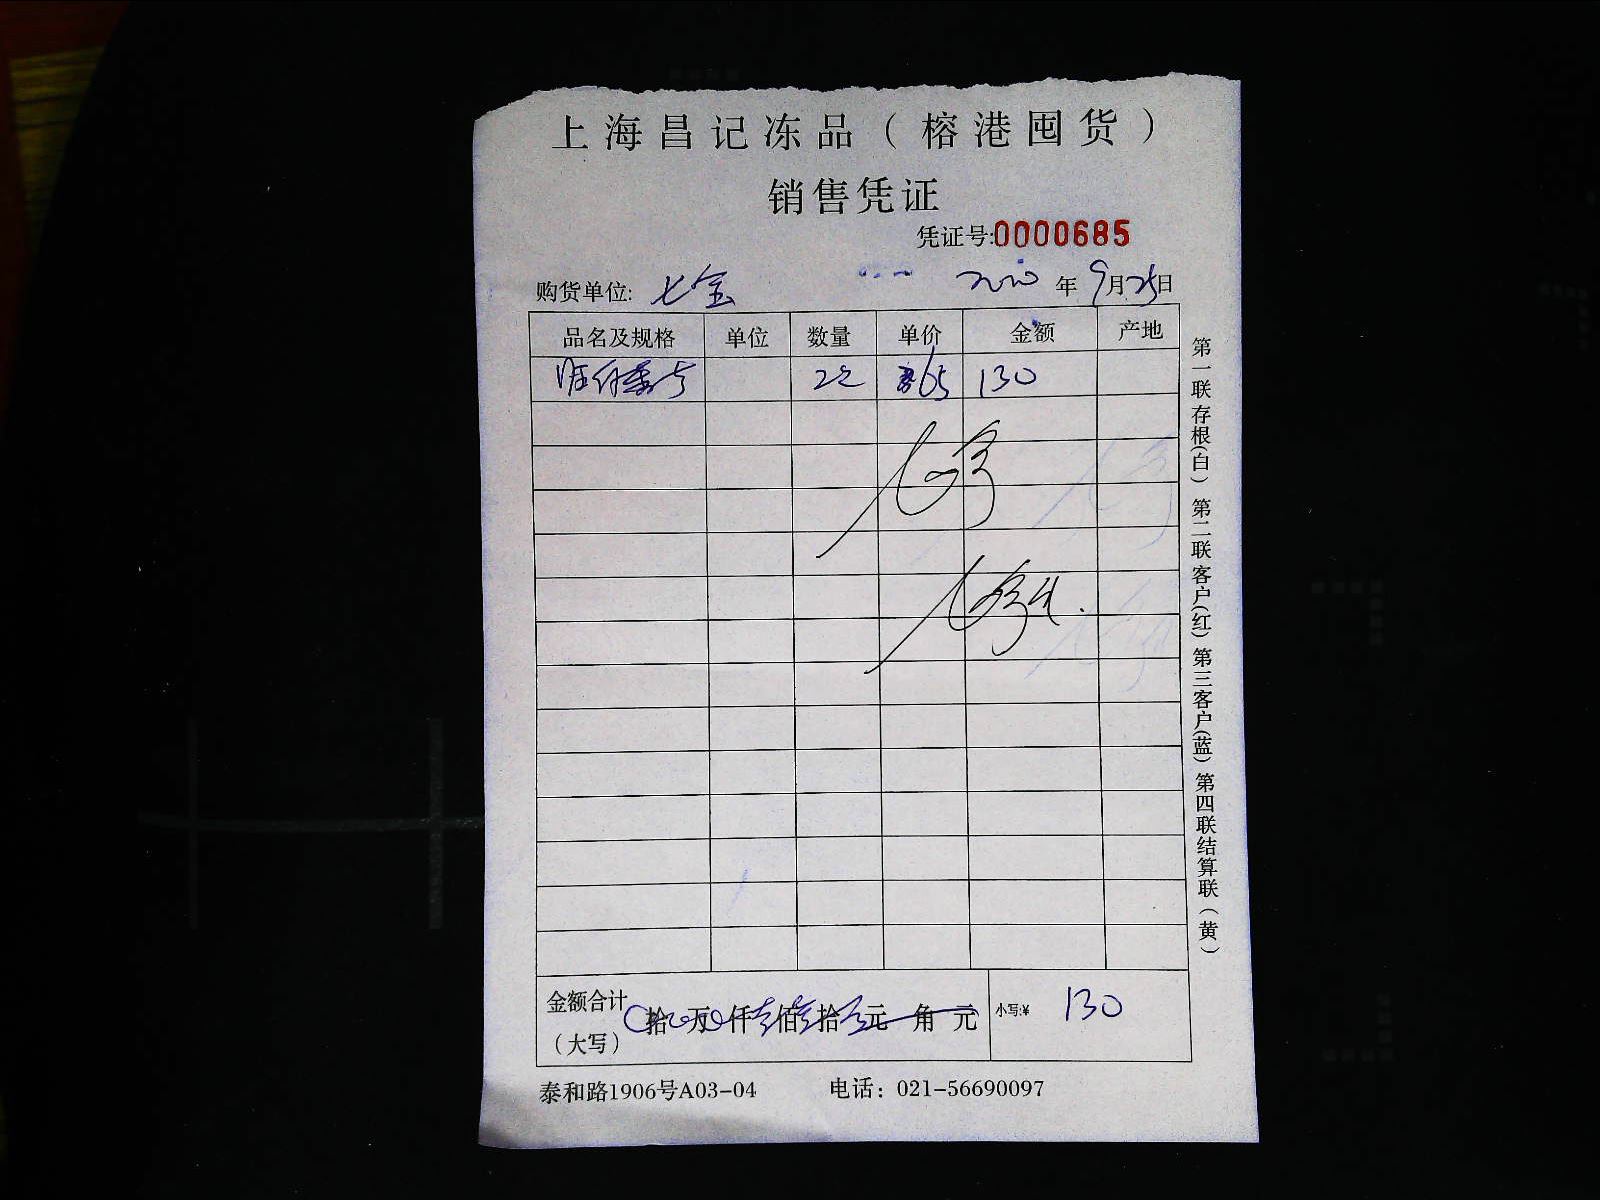 上海昌记冻品（榕港囤货）
销售凭证
凭证号:0000685
购货单位: 七宝 2020年9月25日
品名及规格 单位 数量 单价 金额 产地
65 130
金额合计（大写） 拾 万 仟 佰 拾 元 角 元 小写:¥ 130
泰和路1906号A03-04 电话：021-56690097
第一联存根(白) 第二联客户(红) 第三客户(蓝) 第四联结算联（黄）